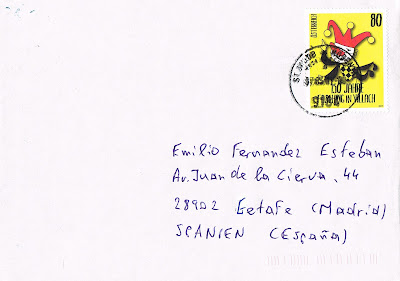 ÖSTERREICH
80
150 JAHRE
FASCHING IN VILLACH
Emilio Fernandez Esteban
Av. Juan de la Cierva, 44
28902 Getafe (Madrid)
SPANIEN (España)